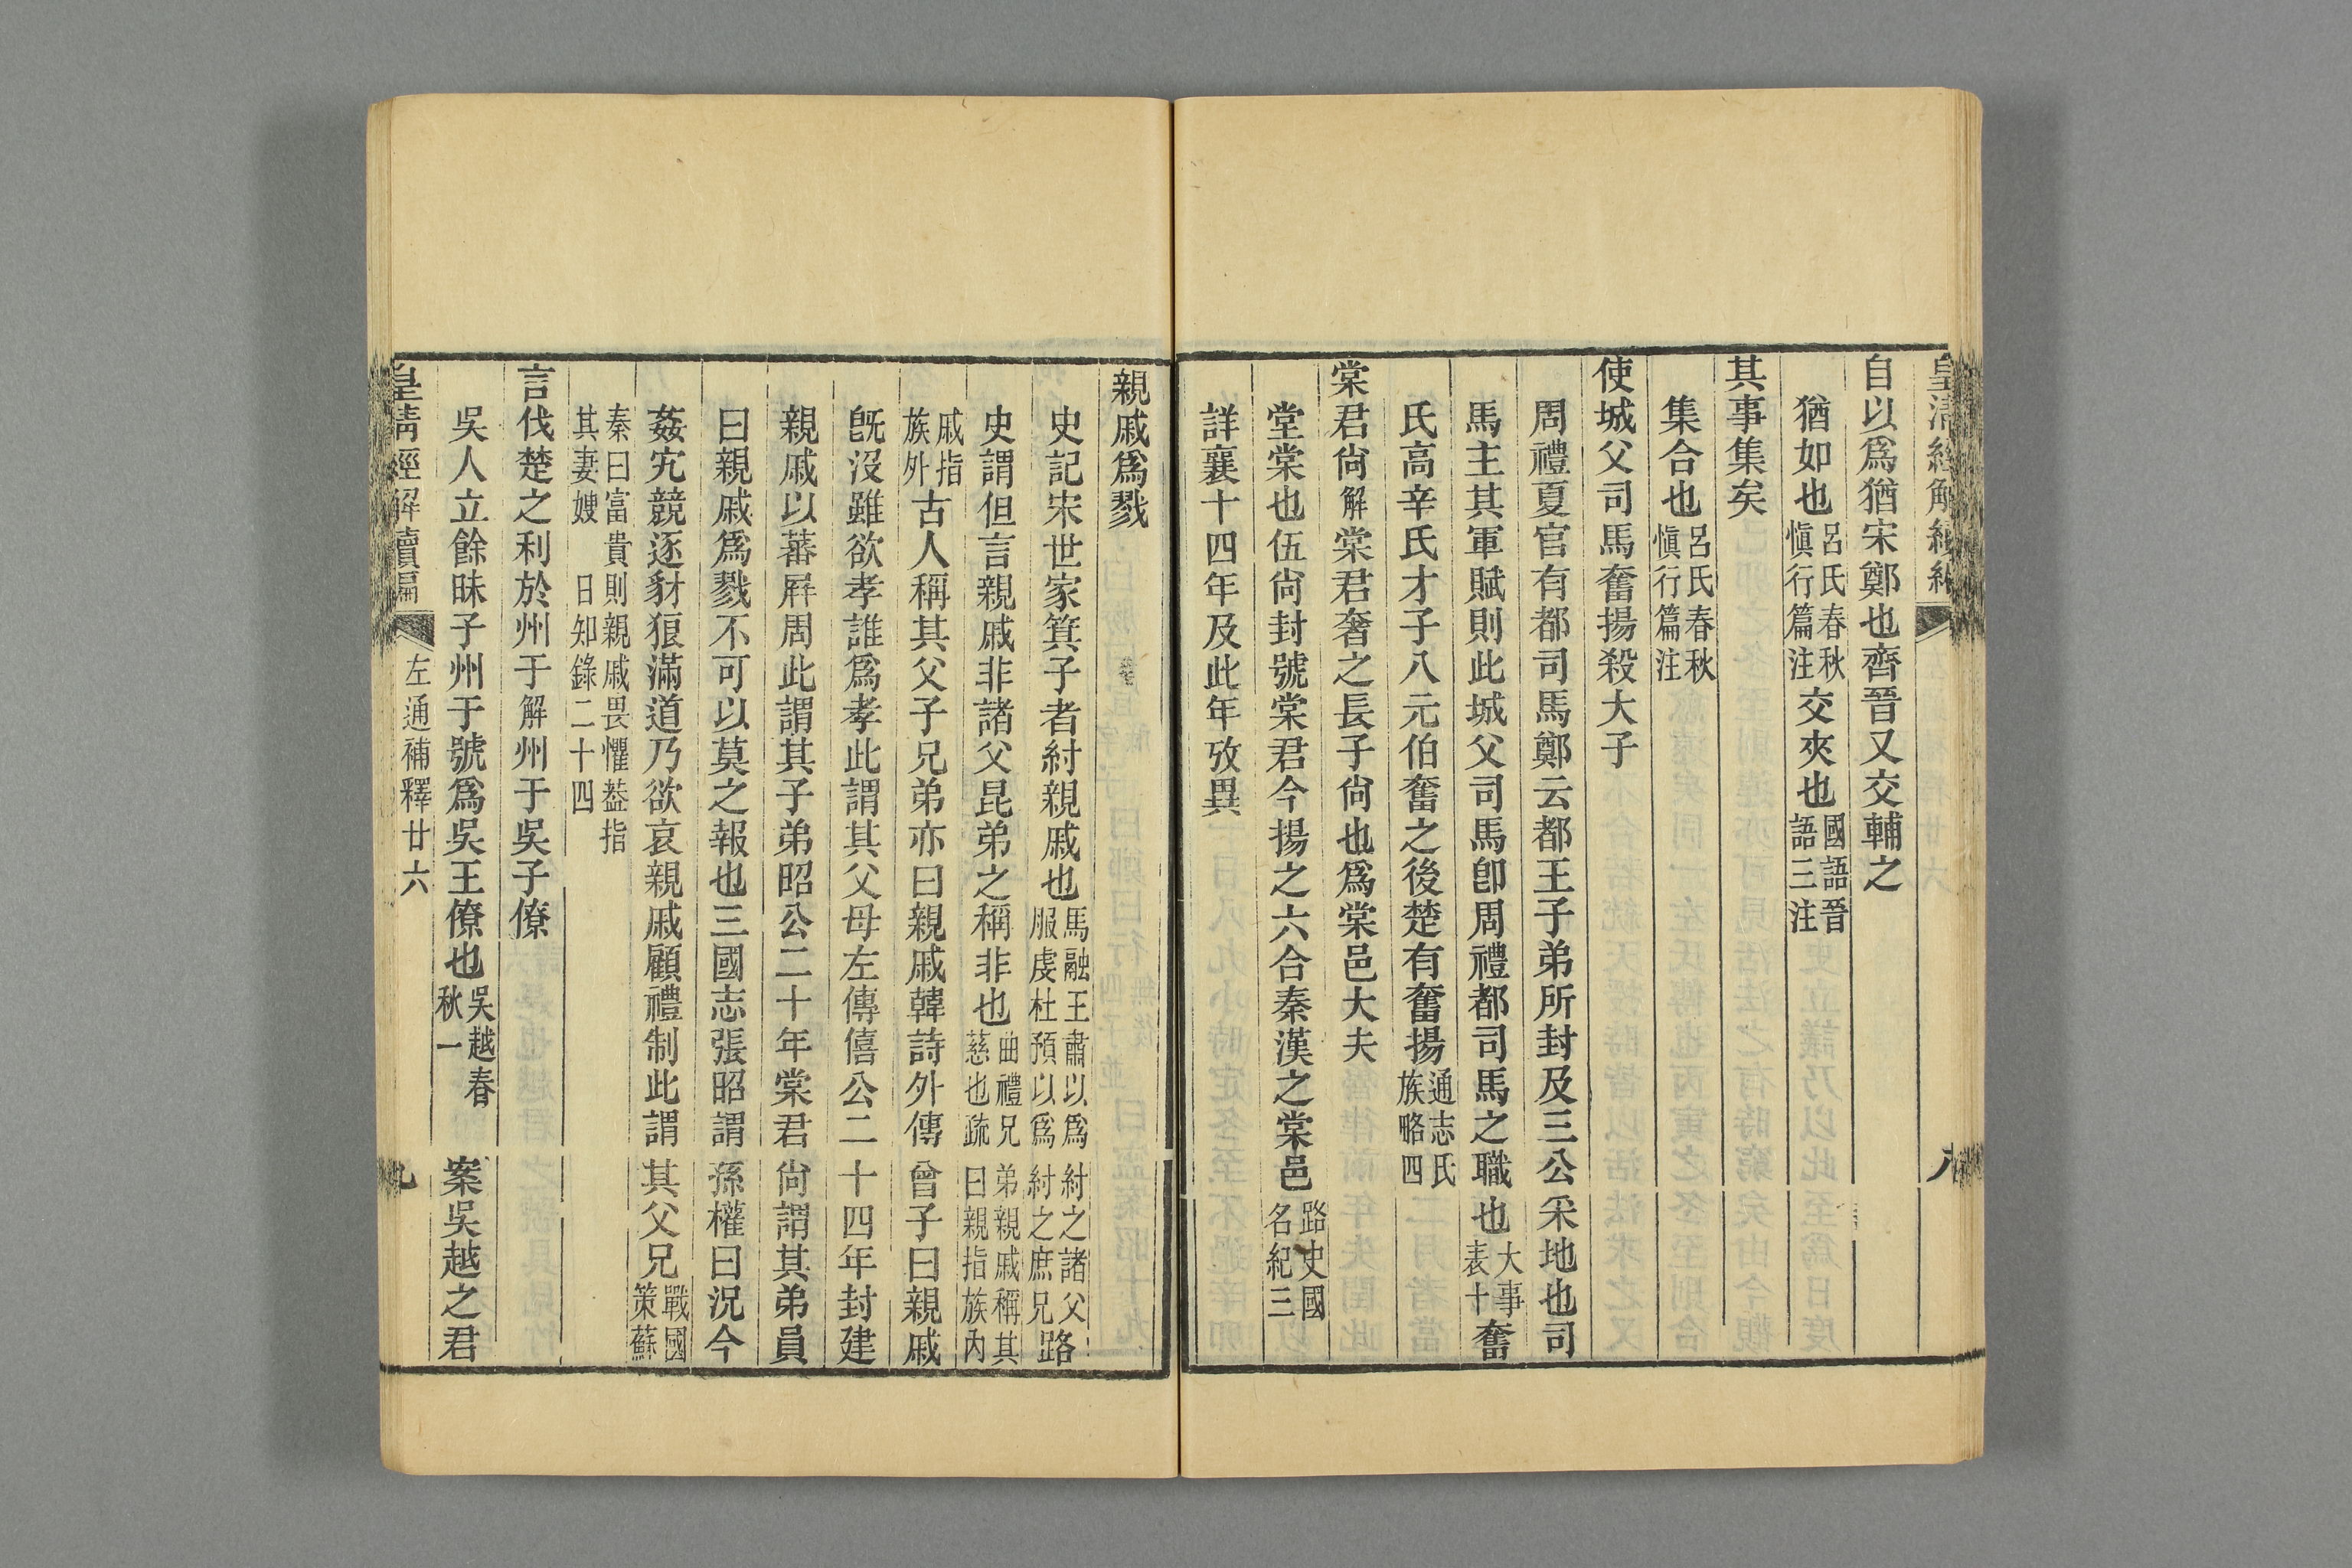 皇清經解續編
自以爲猶宋鄭也齊晉又交輔之
猶如也呂氏春秋慎行篇注交夾也國語晉語三注
其事集矣
集合也呂氏春秋慎行篇注
使城父司馬奮揚殺大子
周禮夏官有都司馬鄭云都王子弟所封及三公采地也司
馬主其軍賦則此城父司馬卽周禮都司馬之職也大事表十奮
氏高辛氏才子八元伯奮之後楚有奮揚通志氏族略四
棠君尙解棠君奢之長子尙也爲棠邑大夫
堂棠也伍尙封號棠君今揚之六合秦漢之棠邑路史國名紀三
詳襄十四年及此年攷異
親戚爲戮
史記宋世家箕子者紂親戚也馬融王肅以爲紂之諸父服虔杜預以爲紂之庶兄路
史謂但言親戚非諸父昆弟之稱非也曲禮兄弟親戚稱其慈也疏曰親指族內
戚指族外古人稱其父子兄弟亦曰親戚韓詩外傳曾子曰親戚
旣沒雖欲孝誰爲孝此謂其父母左傳僖公二十四年封建
親戚以蕃屛周此謂其子弟昭公二十年棠君尙謂其弟員
曰親戚爲戮不可以莫之報也三國志張昭謂孫權曰況今
姦宄競逐豺狼滿道乃欲哀親戚顧禮制此謂其父兄戰國策蘇
秦曰富貴則親戚畏懼葢指其妻嫂 日知錄二十四
言伐楚之利於州于解州于吳子僚
吳人立餘昧子州于號爲吳王僚也吳越春秋一 案吳越之君
皇清經解續編 左通補釋廿六 九